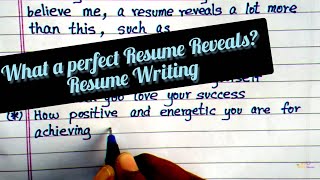 believe me, a resume reveals a lot more
than this, such as
What a perfect Resume Reveals?
Resume Writing
you love your success
(*) How positive and energetic you are for
achieving